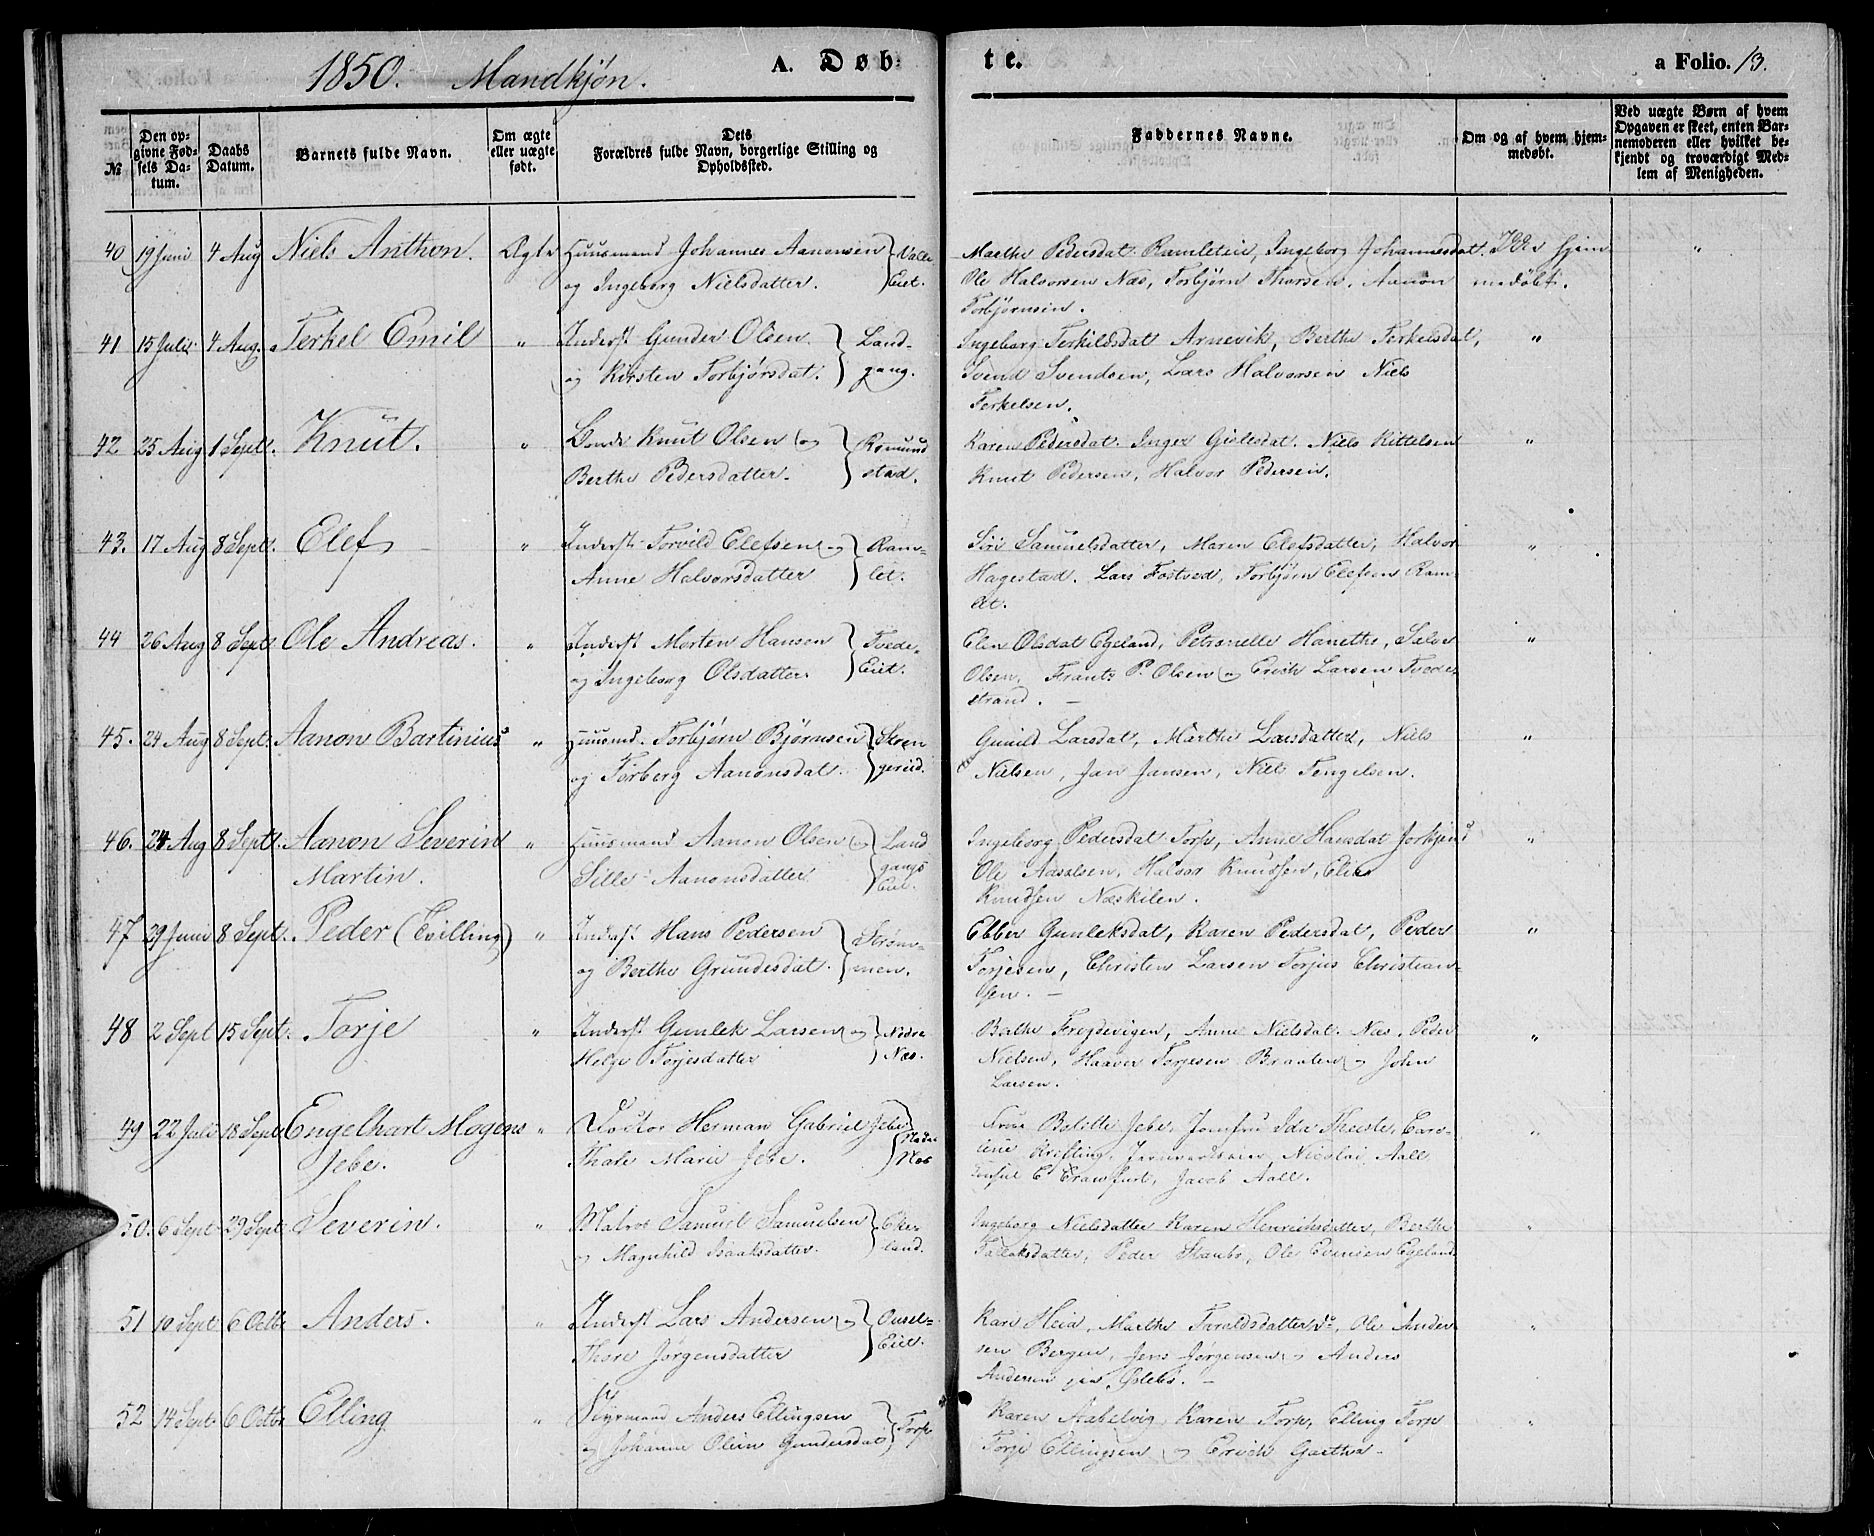 1850. Mandkjøn. A. Døb- te. a Folio. 13.
№ Den opgivne Fødsels Datum. Daabs Datum. Barnets fulde Navn. Om ægte eller uægte født. Dets Forældres fulde Navn, borgerlige Stilling og Opholdssted. Faddernes Navne. Om og af hvem hjemmedøbt. Ved uægte Børn af hvem Opgaven er skeet, enten Barnemoderen eller hvilket bekjendt og troværdigt Medlem af Menigheden.
40 19 Juni 4 Aug Niels Anthon. Ægte Huusmand Johannes Aanonsen Valle Marthe Pedersdat. Ramleteie, Ingeborg Johannesdat. Ikke hjem
og Ingeborg Nielsdatter. Eiet. Ole Halvorsen Næs, Torbjørn Thorsen, Aanon medøbt.
Torbjørnsen.
41 15 Juli 4 Aug. Terkel Emil " Inderst Gunder Olsen Land- Ingeborg Terkildsdat Arnevik, Berthe Terkelsdat, "
og Kirsten Torbjørsdat. gang. Svend Svendsen, Lars Halvorsen Niels
Terkelsen.
42 25 Aug 1 Sept. Knut. " Bonde Knut Olsen og Romund Karen Pedersdat. Inger Gislesdat. Niels Kittelsen "
Berthe Pedersdatter. stad. Knut Pedersen, Halvor Pedersen.
43. 17 Aug 8 Sept. Elef " Inderst Torvild Elefsen og Ram- Siri Samuelsdatter, Maren Elefsdatter, Halvor "
Anne Halvorsdatter let. Hagestad. Lars Fostved, Torbjørn Elefsen Ram-
let.
44 26 Aug 8 Sept Ole Andreas. " Inderst Morten Hansen Tvede- Elen Olsdat Egeland, Petronelle Hanethe, Salve "
og Ingeborg Olsdatter. Eiet. Olsen, Frants P. Olsen og Erich Larsen Tvede-
strand.
45. 24 Aug 8 Sept. Aanon Bartinius " Huusmd. Torbjørn Bjørnsen Skren Gunild Larsdat, Marthe Larsdatter, Niels "
og Torberg Aanonsdat. gereid. Nielsen, Jan Jansen, Niels Tengelsen.
46. 24 Aug 8 Sept. Aanon Severin " Huusmand Aanon Olsen og Land Ingeborg Pedersdat Torp, Anne Hansdat "
Martin. Sille Aanonsdatter gangs Ole Adsalsen, Halvor Knudsen,
Eiet. Knudsen Næskilen.
47 29 Juni 8 Sept. Peder (Tvilling) " Inderst Hans Pedersen Strøm- Ebber Gunleksdat, Karen Pedersdat, Peder "
og Berthe Grundesdat. men. Torjesen, Christen Larsen Torjus Christian-
sen.
48 2 Sept 15 Sept. Torje " Inderst Gunlek Larsen og Nedre Næs. Anne Nielsdat. Næs. Peder "
Helge Torjesdatter Nielsen, Haaver Torjesen Braaten og John
Larsen.
49 22 Juli 18 Sept Engelhart Mogens " Doctor Herman Gabriel Jebe Nedre Frue Bolitte Jebe, Jomfru Ida Theiste, Caro- "
Jebe. Thale Marie Jebe. Næs line Krefting, Nicolai Aall
Consul C Crawfurt, Jacob Aall.
50. 6 Sept 29 Sept Severin. " Matros Samuel Samuelsen Eke- Ingeborg Nielsdatter Karen Henrichsdatter, Berthe "
og Magnhild Isaaksdatter. land. Tallaksdatter, Peder Staubø, Ole Evensen Egeland.
51 10 Sept 6 Octb Anders. " Inderst Lars Andersen og Ousel- Kari Heia, Marthe Taraldsdatter do, Ole Ander- "
Thore Jørgensdatter Eiet. sen Bergen, Jens Jørgensen og Anders
Andersen
52 14 Sept 6 Octb Elling " Styrmand Anders Ellingsen Torp Karen Aabelvig, Karen Torp, Elling Torp "
og Johanne Olein Gundersdat Torje Ellingsen og Erich Gartha.